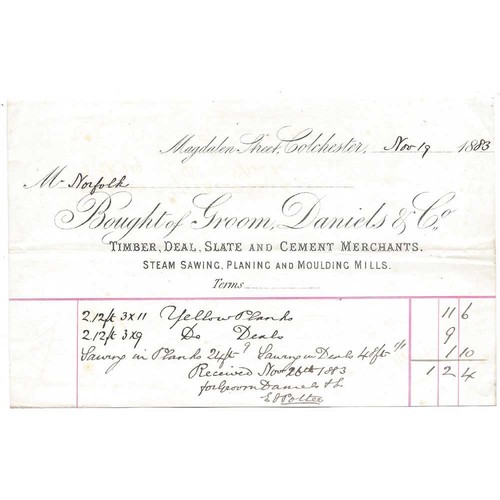 Magdalen Street, Colchester, Nov 19 1883
Mr Norfolk
Bought of Groom, Daniels & Co.
TIMBER, DEAL, SLATE AND CEMENT MERCHANTS.
STEAM SAWING, PLANING AND MOULDING MILLS.
Terms
2. 12/ft 3x11 Yellow Planks 11 6
2. 12/ft 3x9 Do Deals 9
Sawing in Planks 24ft 9 Sawing in Deals 48ft 1/1 1 10
Received Nov 26th 1883 1 2 4
for Groom Daniels & Co
E J Potter